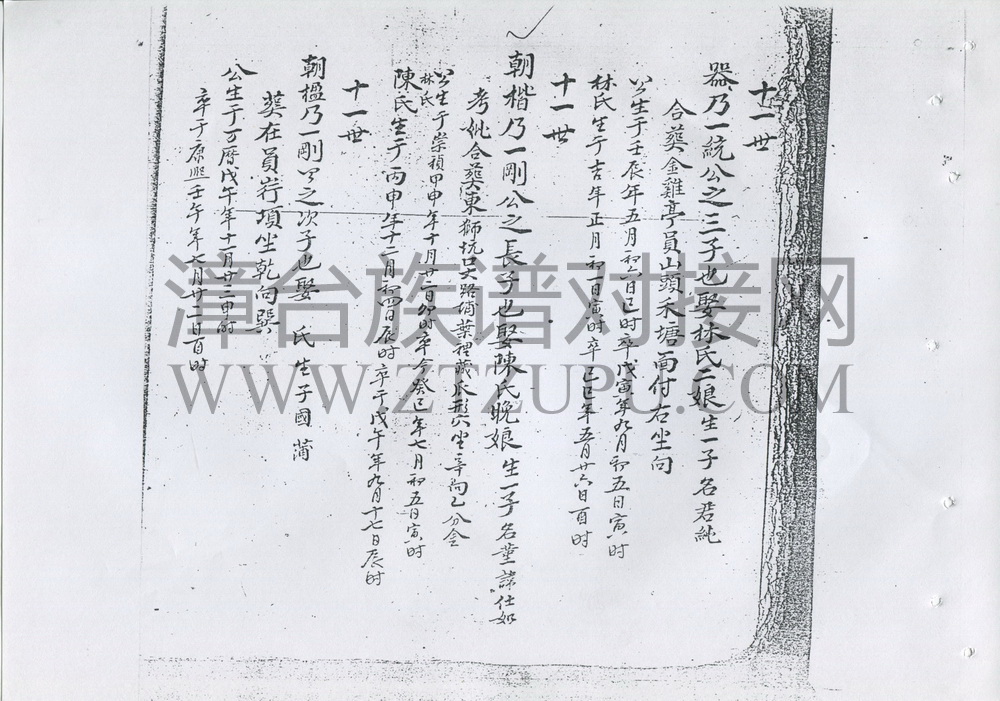 十一世
器乃一統公之三子也娶林氏二娘生一子名君純
合葬金雞亭員山頭禾塘面付右坐向
公生于壬辰年五月初六日巳时卒戊寅年九月初五日寅时
林氏生于吉年正月初一日寅时卒己巳年五月廿六日酉时
十一世
朝楷乃一剛公之長子也娶陳氏晚娘生一子名堂諱仕如
考妣合葬東獅坑口大路 葉裡 灰形穴坐辛向乙分金
公生于崇禎甲申年十月廿二日卯时卒今癸巳年七月初五日寅时
林氏
陳氏生于丙申年十二月初四日辰时卒于戊午年九月十七日辰时
十一世
朝楹乃一剛公之次子也娶 氏生子國蒲
葬在員 項坐乾向巽
公生于万曆戊午年十一月廿三申时
卒于康熙壬午年七月廿二日酉时
漳台族谱对接网
WWW.ZTZUPU.COM